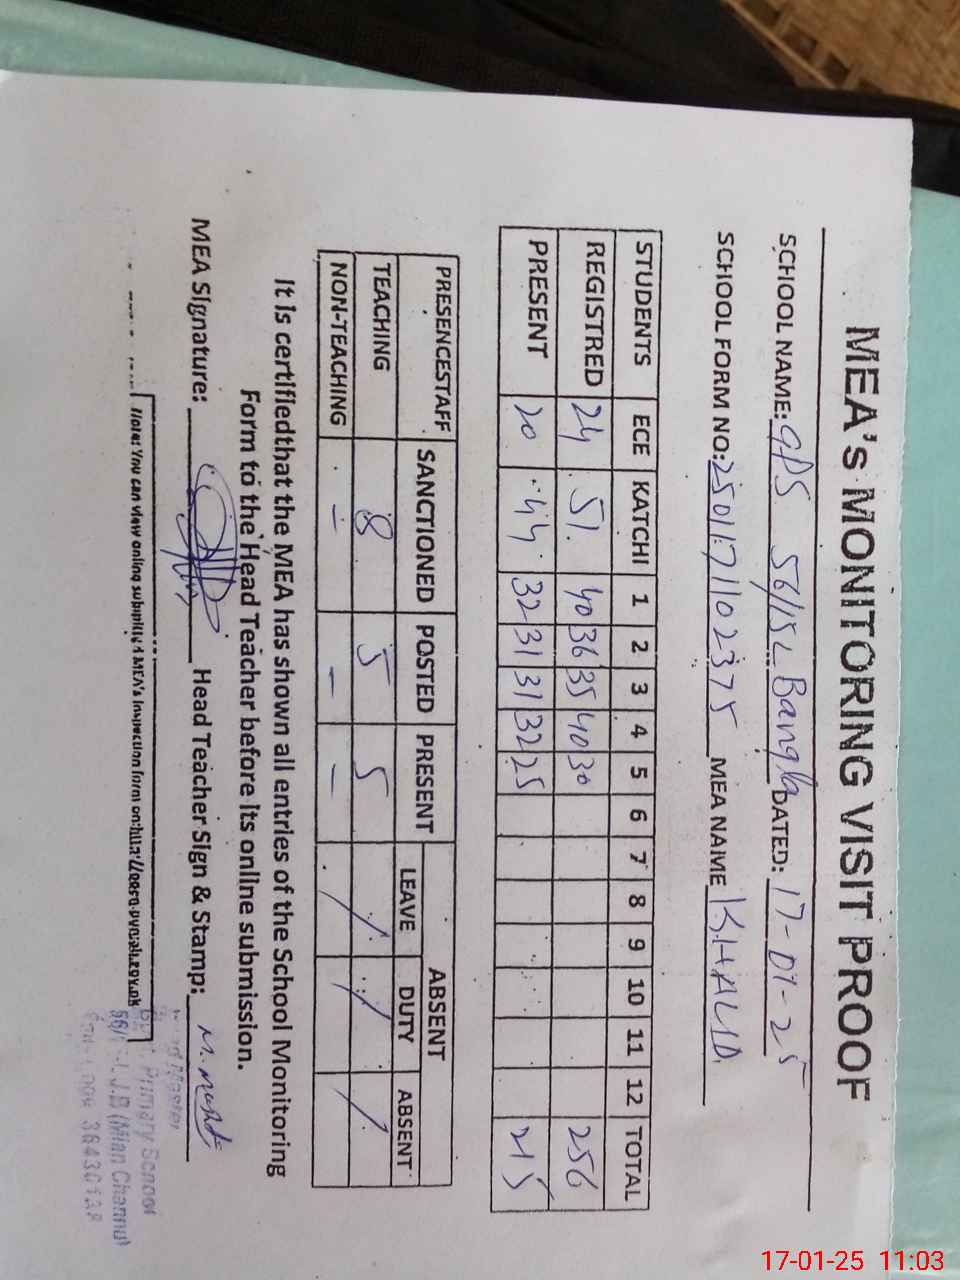 MEA's MONITORING VISIT PROOF
SCHOOL NAME: GPS 56/15L Bangla DATED: 17-01-25
SCHOOL FORM NO: 25011711102375 MEA NAME KHALID
STUDENTS ECE KATCHI 1 2 3 4 5 6 7 8 9 10 11 12 TOTAL
REGISTRED 24 51 40 36 35 40 30 256
PRESENT 20 44 32 31 31 32 25 215
PRESENCESTAFF SANCTIONED POSTED PRESENT ABSENT
LEAVE DUTY ABSENT
TEACHING 8 5 5 / / /
NON-TEACHING - - -
It is certifiedthat the MEA has shown all entries of the School Monitoring
Form to the Head Teacher before its online submission.
MEA Signature: Head Teacher Sign & Stamp:
Note: You can view online submitted MEA's Inspection form on:
Head Master
Primary School
(Mian Channu)
36430128
17-01-25 11:03